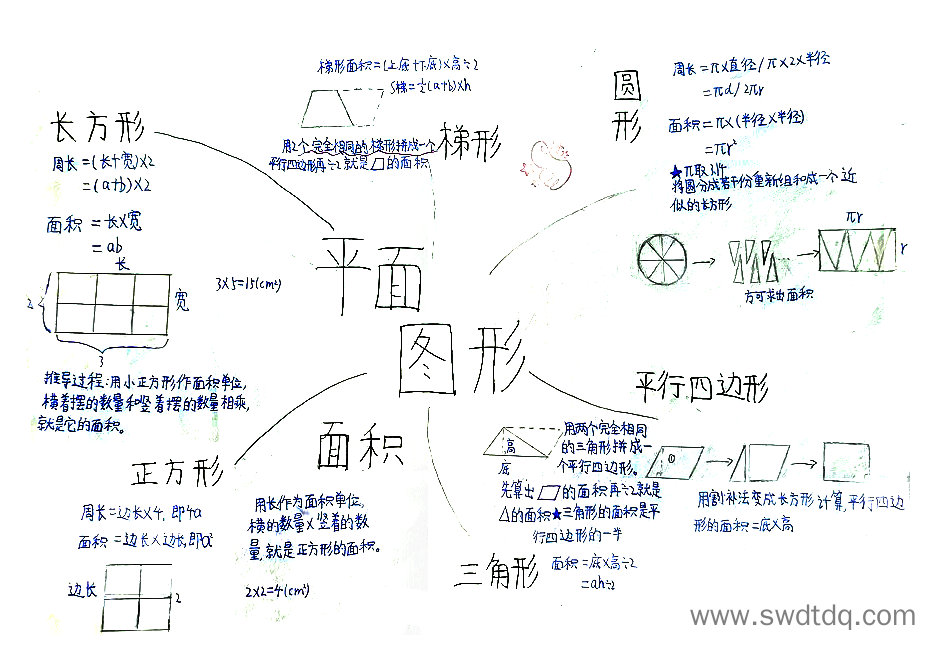 平面
图形
面积
长方形
周长=(长+宽)×2
=(a+b)×2
面积=长×宽
=ab
长
2
宽
3
3×5=15(cm²)
推导过程:用小正方形作面积单位,
横着摆的数量和竖着摆的数量相乘,
就是它的面积。
梯形面积=(上底+下底)×高÷2
S梯=½(a+b)×h
梯形
用2个完全相同的梯形拼成一个
平行四边形再÷2就是▱的面积
圆形
周长=π×直径/π×2×半径
=πd/2πr
面积=π×(半径×半径)
=πr²
★π取3.14
将圆分成若干份重新组和成一个近
似的长方形
πr
r
方可求出面积
平行四边形
①
用割补法变成长方形计算,平行四边
形的面积=底×高
高
底
用两个完全相同
的三角形拼成一
个平行四边形。
先算出▱的面积再÷2就是
△的面积★三角形的面积是平
行四边形的一半
三角形
面积=底×高÷2
=ah÷2
正方形
周长=边长×4,即4a
面积=边长×边长,即a²
边长
2
用长作为面积单位,
横的数量×竖着的数
量,就是正方形的面积。
2×2=4(cm²)
www.swdtdq.com